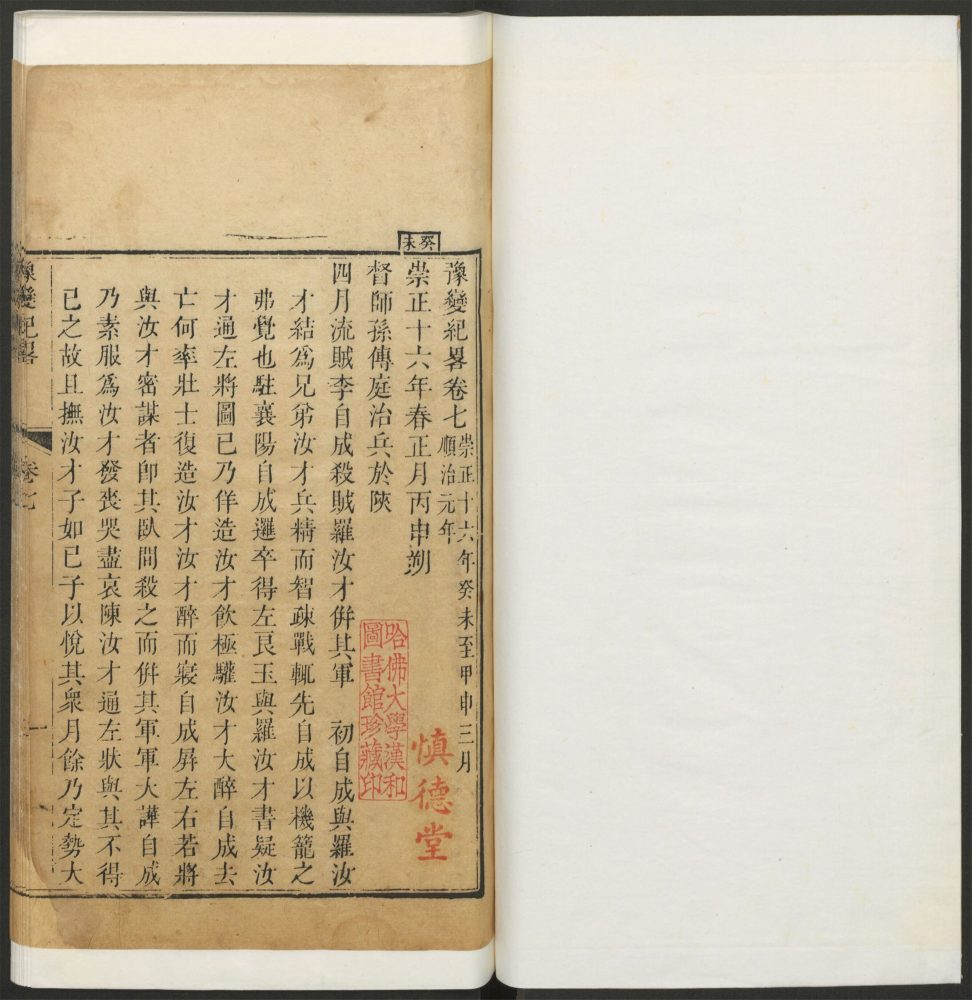 癸未
豫變紀畧卷七崇正十六年癸未至甲申三月
順治元年
崇正十六年春正月丙申朔
督師孫傳庭治兵於陝
四月流賊李自成殺賊羅汝才併其軍　初自成與羅汝
才結爲兄弟汝才兵精而智疎戰輒先自成以機籠之
弗覺也駐襄陽自成邏卒得左良玉與羅汝才書疑汝
才通左將圖已乃佯造汝才飲極驩汝才大醉自成去
亡何率壯士復造汝才汝才醉而寢自成屏左右若將
與汝才密謀者卽其臥間殺之而併其軍軍大譁自成
乃素服爲汝才發喪哭盡哀陳汝才通左狀與其不得
已之故且撫汝才子如已子以悅其衆月餘乃定勢大
豫變紀畧
卷七
一
慎德堂
哈佛大學漢和
圖書館珍藏印